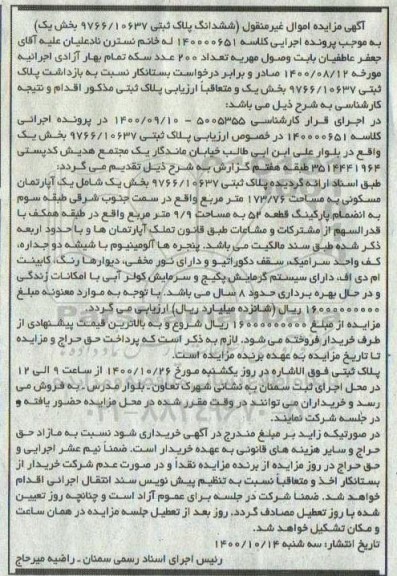 آگهی مزایده اموال غیرمنقول (ششدانگ پلاک ثبتی ۹۷۶۶/۱۰۶۳۷ بخش یک)
به موجب پرونده اجرایی کلاسه ۱۴۰۰۰۰۶۵۱ له خانم نسترن نادعلیان علیه آقای
جعفر عاطفیان بابت وصول مهریه تعداد ۲۰۰ عدد سکه تمام بهار آزادی اجرائیه
مورخه ۱۴۰۰/۰۸/۱۲ صادر و برابر درخواست بستانکار نسبت به بازداشت پلاک
ثبتی ۹۷۶۶/۱۰۶۳۷ بخش یک و متعاقباً ارزیابی پلاک ثبتی مذکور اقدام و نتیجه
کارشناسی به شرح ذیل می باشد:
در اجرای قرار کارشناسی ۵۰۰۵۳۵۵ - ۱۴۰۰/۰۹/۱۰ در پرونده اجرائی
کلاسه ۱۴۰۰۰۰۶۵۱ در خصوص ارزیابی پلاک ثبتی ۹۷۶۶/۱۰۶۳۷ بخش یک
واقع در بلوار علی ابن ابی طالب خیابان ماندگار یک مجتمع هدیش کدپستی
۳۵۱۴۴۴۱۹۶۴ طبقه هفتم گزارش به شرح ذیل تقدیم می گردد:
طبق اسناد ارائه گردیده پلاک ثبتی ۹۷۶۶/۱۰۶۳۷ بخش یک شامل یک آپارتمان
مسکونی به مساحت ۱۷۳/۷۶ متر مربع واقع در سمت جنوب شرقی طبقه سوم
به انضمام پارکینگ قطعه ۵۲ به مساحت ۹/۹ متر مربع واقع در طبقه همکف با
قدرالسهم از مشترکات و مشاعات طبق قانون تملک آپارتمان ها و با حدود اربعه
ذکر شده طبق سند مالکیت می باشد. پنجره ها آلومینیوم با شیشه دو جداره،
کف واحد سرامیک، سقف دکوراتیو و دارای نور مخفی، دیوارها رنگ، کابینت
ام دی اف، دارای سیستم گرمایش پکیج و سرمایش کولر آبی با امکانات زندگی
و در حال بهره برداری حدود ۸ سال می باشد. با توجه به موارد معنونه مبلغ
۱۶۰۰۰۰۰۰۰۰۰ ریال (شانزده میلیارد ریال) ارزیابی می گردد.
مزایده از مبلغ ۱۶۰۰۰۰۰۰۰۰۰ ریال شروع و به بالاترین قیمت پیشنهادی از
طرف خریدار فروخته می شود. لازم به ذکر است که پرداخت حق حراج و مزایده
تا تاریخ مزایده به عهده برنده مزایده است.
پلاک ثبتی فوق الاشاره در روز یکشنبه مورخ ۱۴۰۰/۱۰/۲۶ از ساعت ۹ الی ۱۲
در محل اجرای ثبت سمنان به نشانی شهرک تعاون - بلوار مدرس - به فروش می
رسد و خریداران می توانند در وقت مقرر شده در محل مزایده حضور یافته و
در جلسه شرکت نمایند.
در صورتیکه زاید بر مبلغ مندرج در آگهی خریداری شود نسبت به مازاد حق
حراج و سایر هزینه های قانونی به عهده خریدار است. ضمناً نیم عشر اجرایی و
حق حراج در روز مزایده از برنده مزایده نقداً و در صورت عدم شرکت خریدار از
بستانکار اخذ و متعاقباً نسبت به تنظیم پیش نویس سند انتقال اجرائی اقدام
خواهد شد. ضمناً شرکت در جلسه برای عموم آزاد است و چنانچه روز تعیین
شده با روز تعطیل مصادف گردد، روز بعد از تعطیل جلسه مزایده در همان ساعت
و مکان تشکیل خواهد شد.
تاریخ انتشار: سه شنبه ۱۴۰۰/۱۰/۱۴
رئیس اجرای اسناد رسمی سمنان - راضیه میرحاج